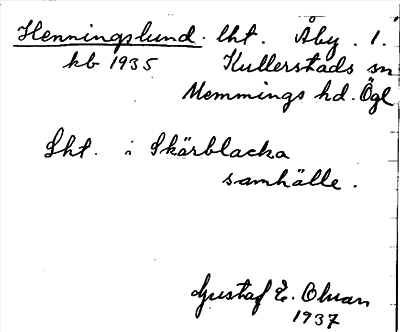 Henningslund. lht. Åby. 1.
kb 1935 Kullerstads sn
Memmings hd. Ögl
Lht. i Skärblacka
samhälle.
Gustaf E. Olson
1937